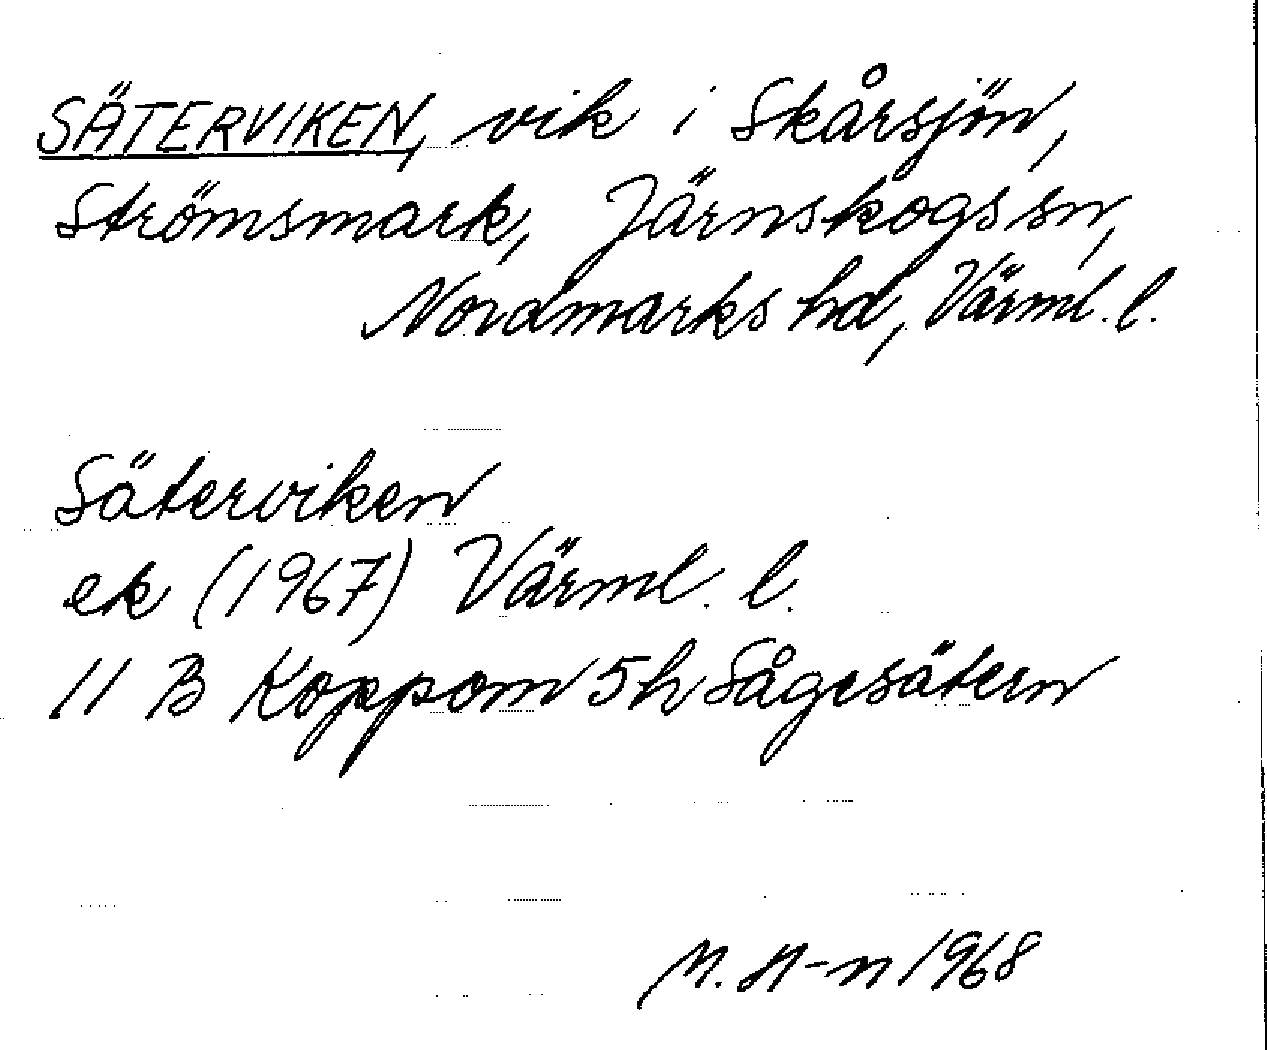 SÄTERVIKEN, vik i Skårsjön,
Strömsmark, Järnskogs sn,
Nordmarks hd, Värml. l.
Säterviken
ek (1967) Värml. l.
11 B Koppom 5h Sågesätern
M. H-n 1968